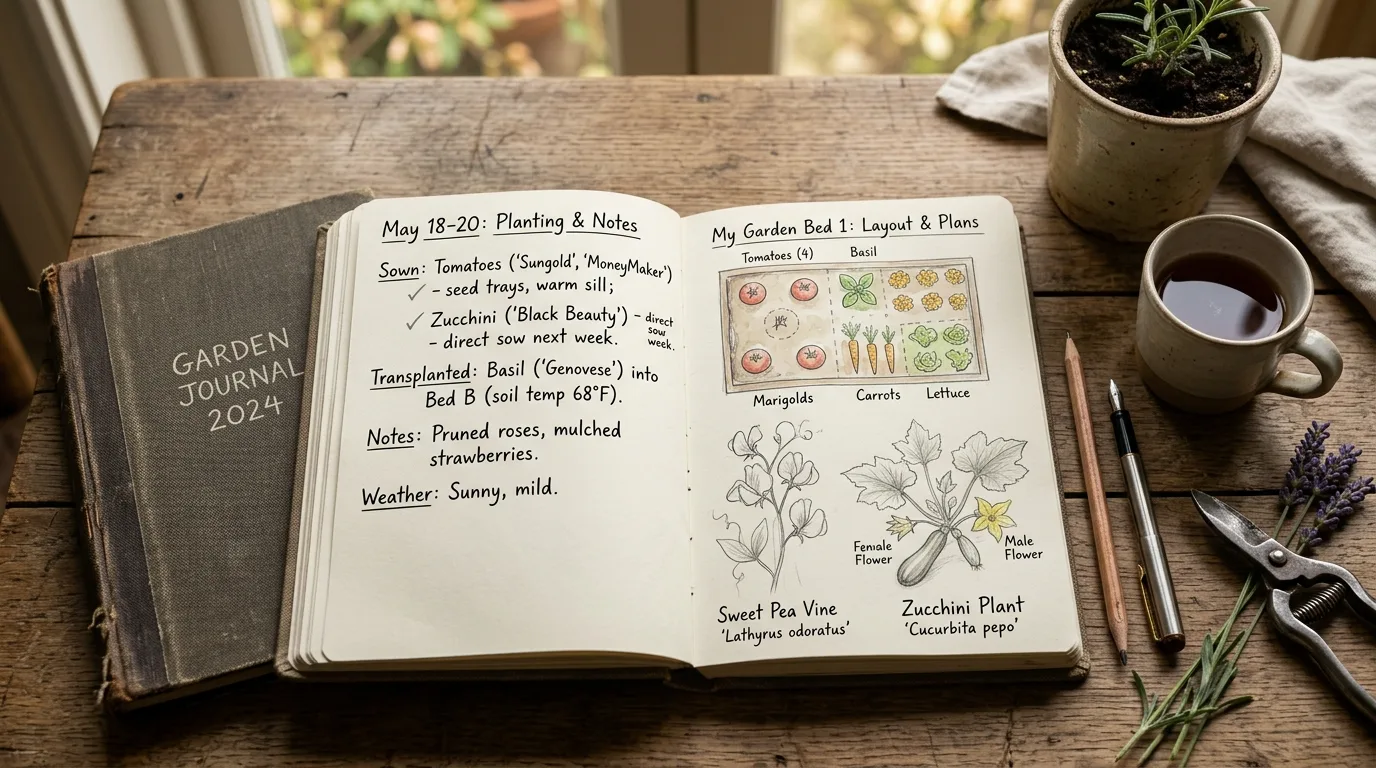 GARDEN
JOURNAL
2024
May 18-20: Planting & Notes
Sown: Tomatoes ('Sungold', 'MoneyMaker')
✓ – seed trays, warm sill;
✓ Zucchini ('Black Beauty') – direct
sow
week.
– direct sow next week.
Transplanted: Basil ('Genovese') into
Bed B (soil temp 68°F).
Notes: Pruned roses, mulched
strawberries.
Weather: Sunny, mild.
My Garden Bed 1: Layout & Plans
Tomatoes (4) Basil
Marigolds Carrots Lettuce
Female
Flower
Male
Flower
Sweet Pea Vine
'Lathyrus odoratus'
Zucchini Plant
'Cucurbita pepo'